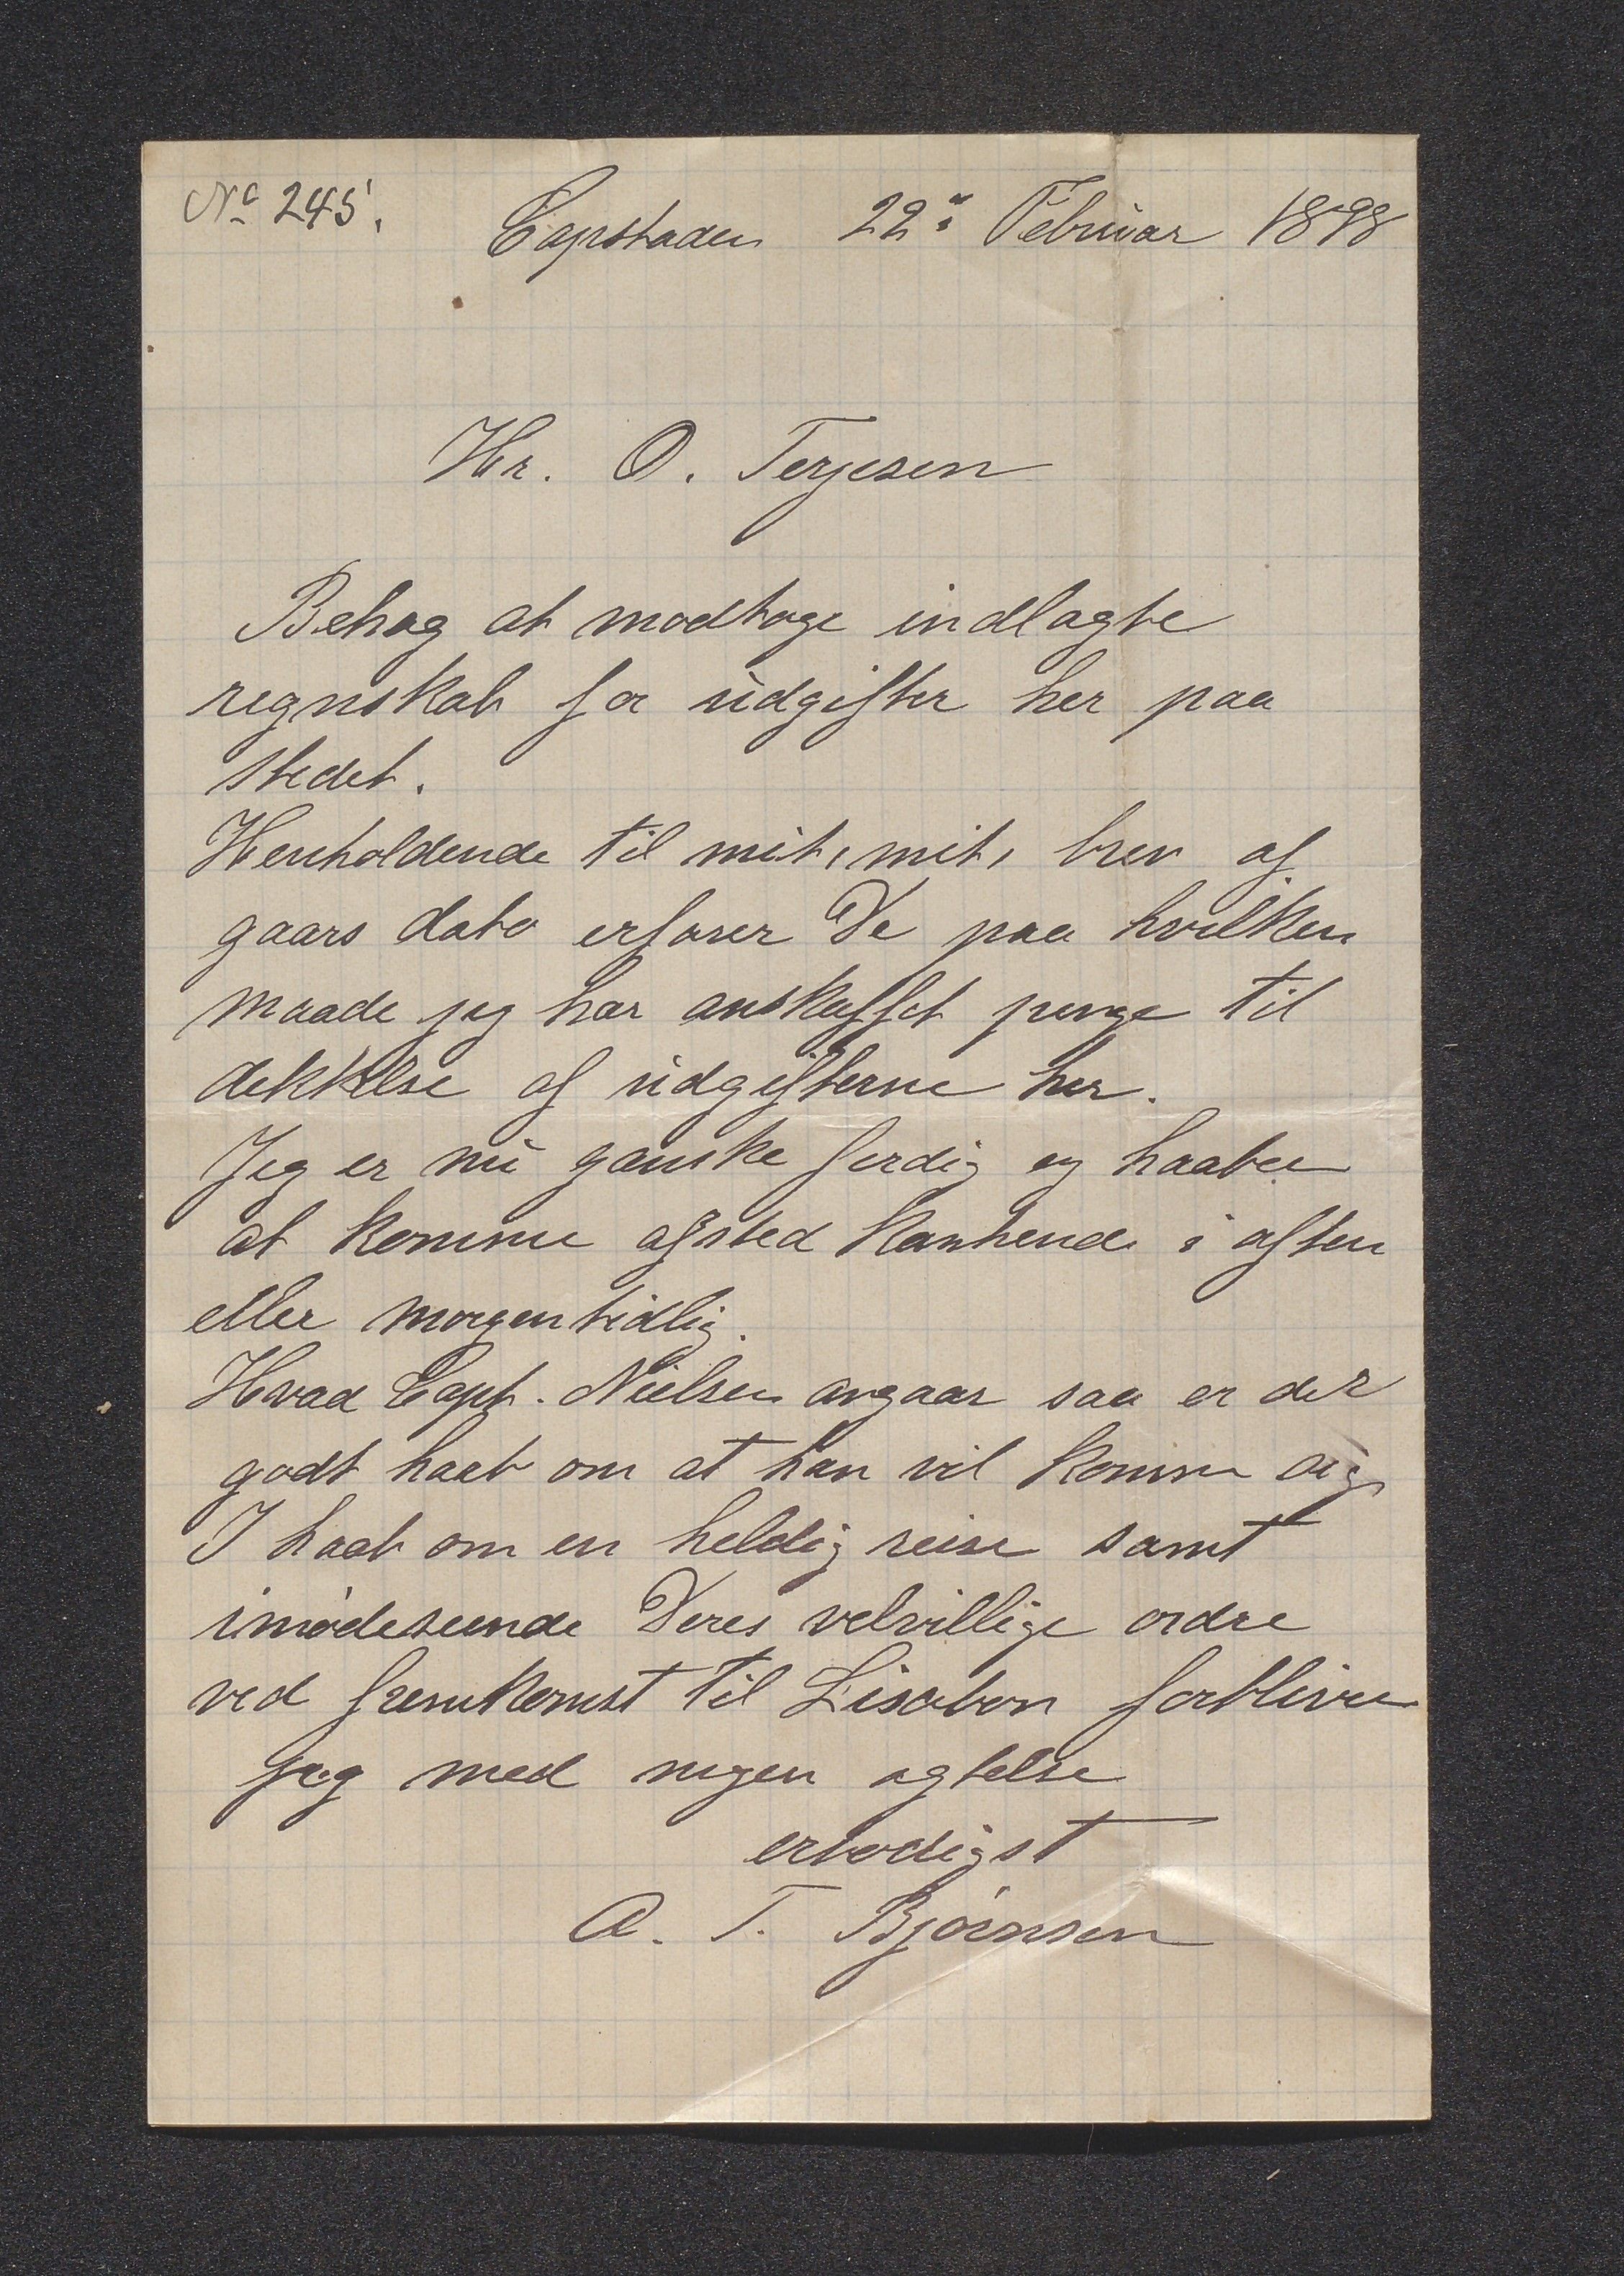 No 245.
Capstaden 22de Februar 1898
Hr. O. Terjesen
Behag at modtage indlagte
regnskab for udgifter her paa
stedet.
Henholdende til mit, mit, brev af
gaars dato erfarer De paa hvilken
maade jeg har anskaffet penge til
dekkelse af udgifterne her.
Jeg er nu ganske ferdig og haaber
at komme afsted kanhende i aften
eller morgen tidlig.
Hvad Capt. Nielsen angaar saa er der
godt haab om at han vil komme sig
I haab om en heldig reise samt
imødeseende Deres velvillige ordre
ved fremkomst til Lisabon forbliver
jeg med megen agtelse
erbødigst
A. T. Bjørnsen